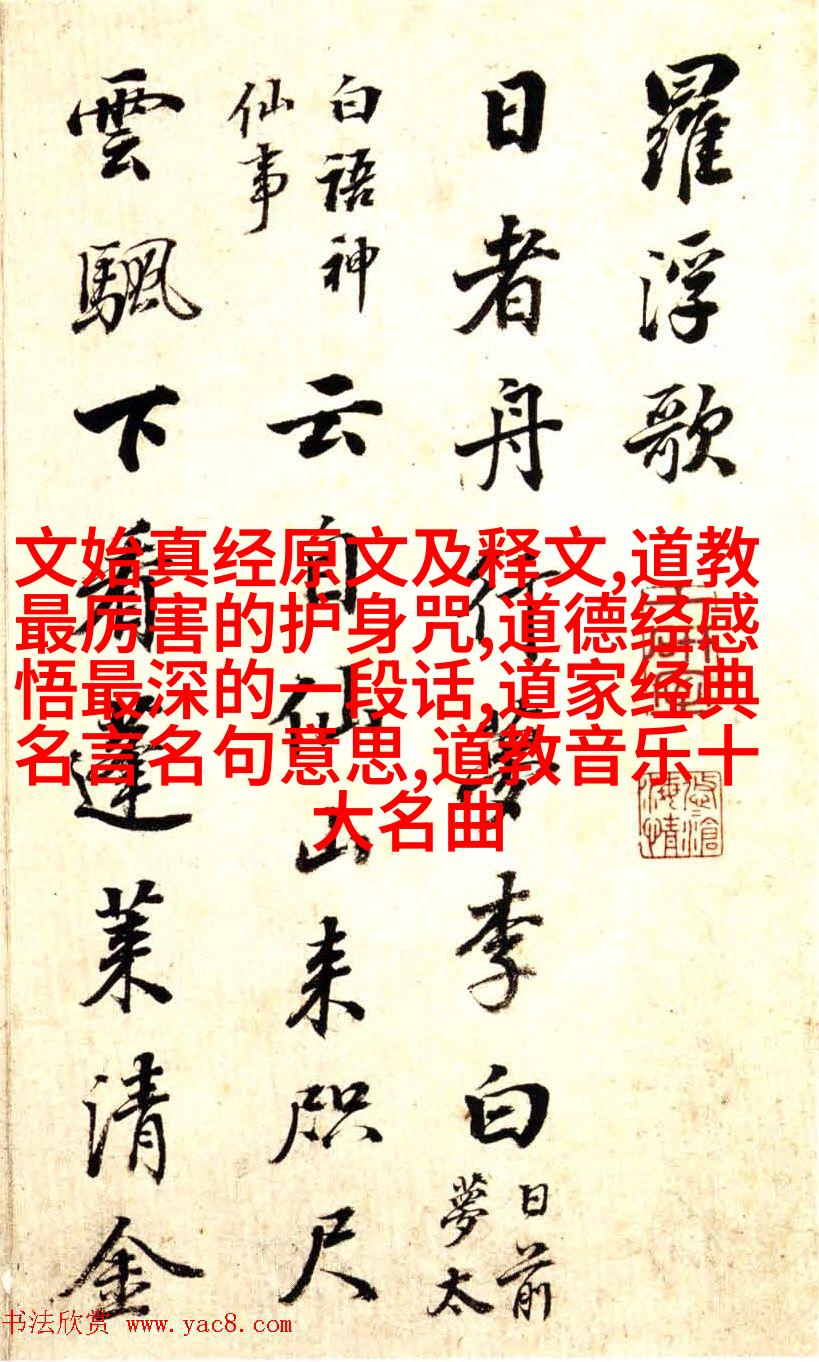 羅浮歌
日者舟行夢李白
日前
夢太
白語神
仙事
云自仙山来咫尺
雲颿下看蓬莱清金
文始真经原文及释文,道教
最厉害的护身咒,道德经感
悟最深的一段话,道家经典
名言名句意思,道教音乐十
大名曲
书法欣赏 www.yac8.com